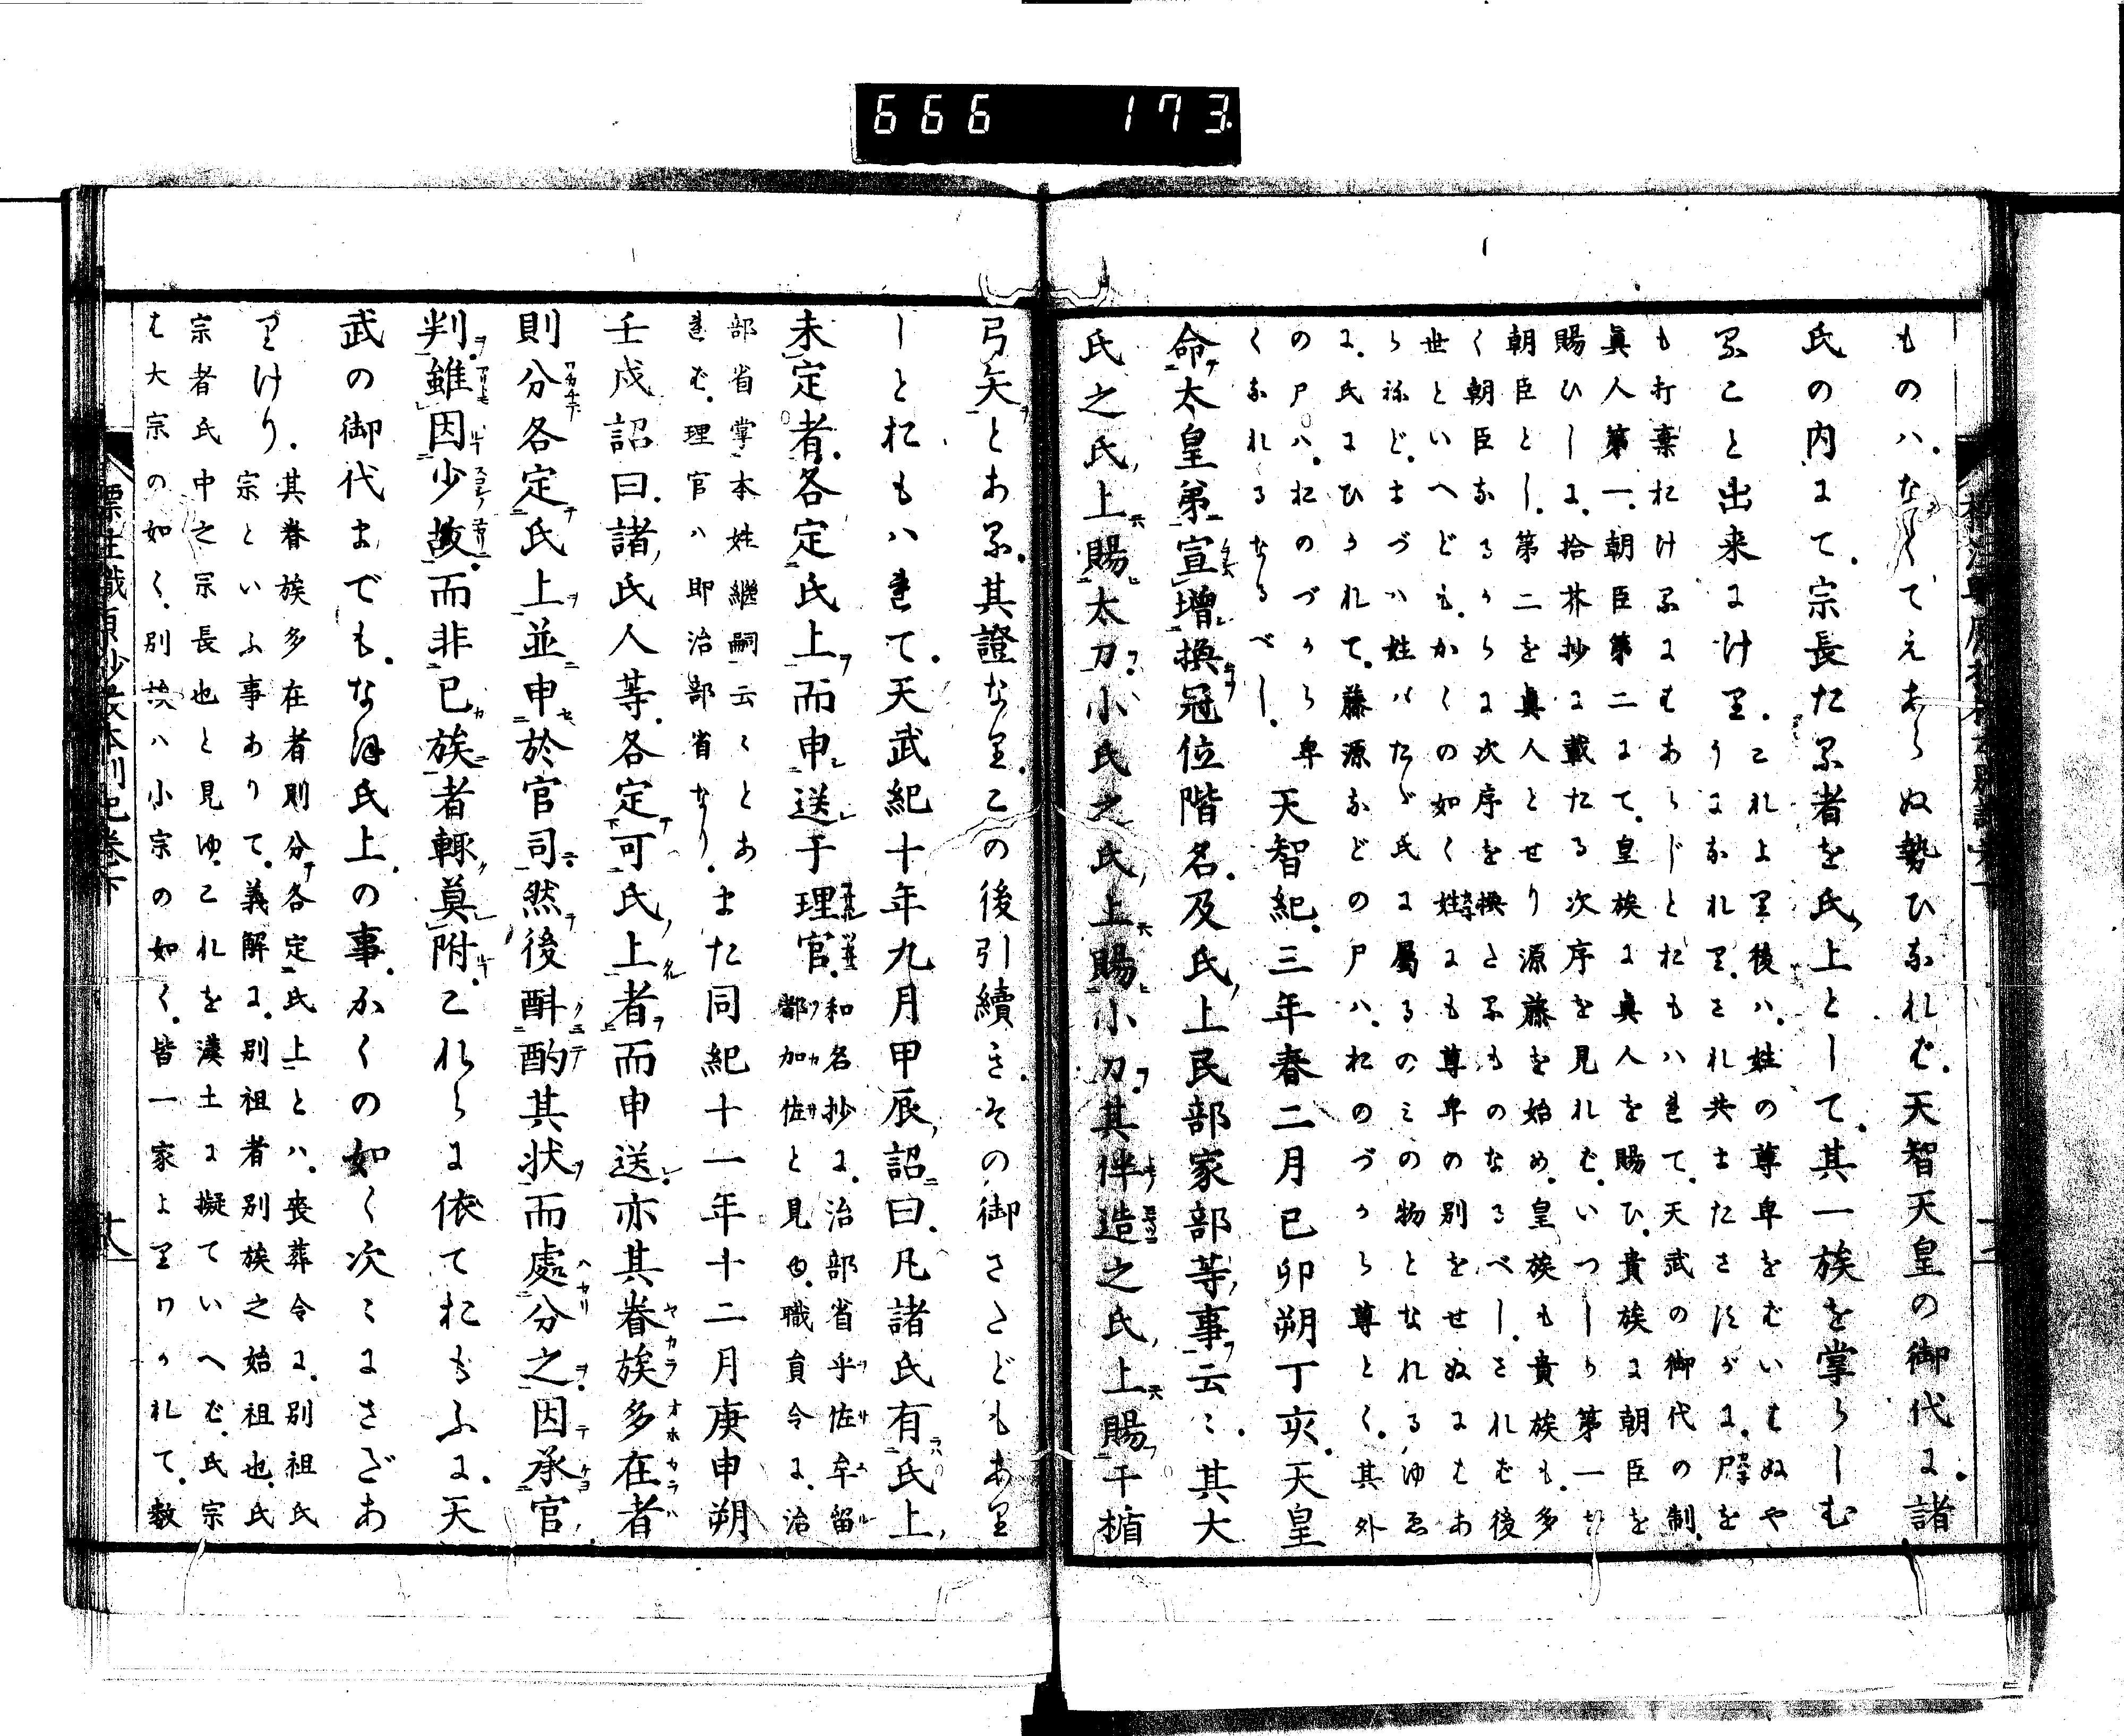 666 173
ものハ．なくてえあらぬ勢ひなれむ．天智天皇の御代に．諸
氏の内にて．宗長たる者を氏上として．其一族を掌らしむ
ることと出来にけり．これより後ハ．姓の尊卑をむいはぬや
うになれり．されともたさすがに．尸を
も打棄おけるにむあらじとおもハれて．天武の御代の制．
眞人第一．朝臣第二にて．皇族に眞人を賜ひ．貴族に朝臣を
賜ひしに．拾芥抄に載たる次序を見れむ．いつしか第一を
朝臣とし．第二を眞人とせり源藤を始め．皇族も貴族も．多
く朝臣なるからに次序を換たるものなるべし．されむ後
世といへども．かくの如く姓にも尊卑の別をせぬにはあ
らねど．まづハ姓はたゞ氏に屬るのミの物となれるゆゑ
に．氏にひかれて．藤源などの尸ハ．おのづから尊とく．其外
の尸ハ．おのづから卑
くなれるなるべし．
天智紀．三年春二月己卯朔丁亥．天皇
命太皇弟宣増換冠位階名．及氏上民部家部等事云〻．其大
氏之氏上賜太刀．小氏之氏上賜小刀．其伴造之氏上賜干楯
弓矢とある．其證なり．この後引續き．その御さたどもあり
しとおもハれて．天武紀十年九月甲辰詔曰．凡諸氏有氏上
未定者．各定氏上而申送于理官．和名抄に．治部省乎佐牟留
都加佐と見ゆ．職員令に．治
部省掌本姓繼嗣云〻とあ
れむ．理官ハ即治部省なり．
また同紀十一年十二月庚申朔
壬戌詔曰．諸氏人等．各定可氏上者而申送．亦其眷族多在者
則分各定氏上並申於官司．然後酙酌其状而處分之．因承官
判．雖因少故．而非已族者輙莫附．これらに依ておもふに．天
武の御代までも．なほ氏上の事．かくの如く次〻にさだあ
りけり．其眷族多在者則分各定氏上とハ．喪葬令に．別祖氏
宗といふ事ありて．義解に．別祖者別族之始祖也．氏
宗者氏中之宗長也と見ゆ．これを漢土に擬ていへむ．氏宗
は大宗の如く．別族ハ小宗の如く．皆一家よりワかれて．数